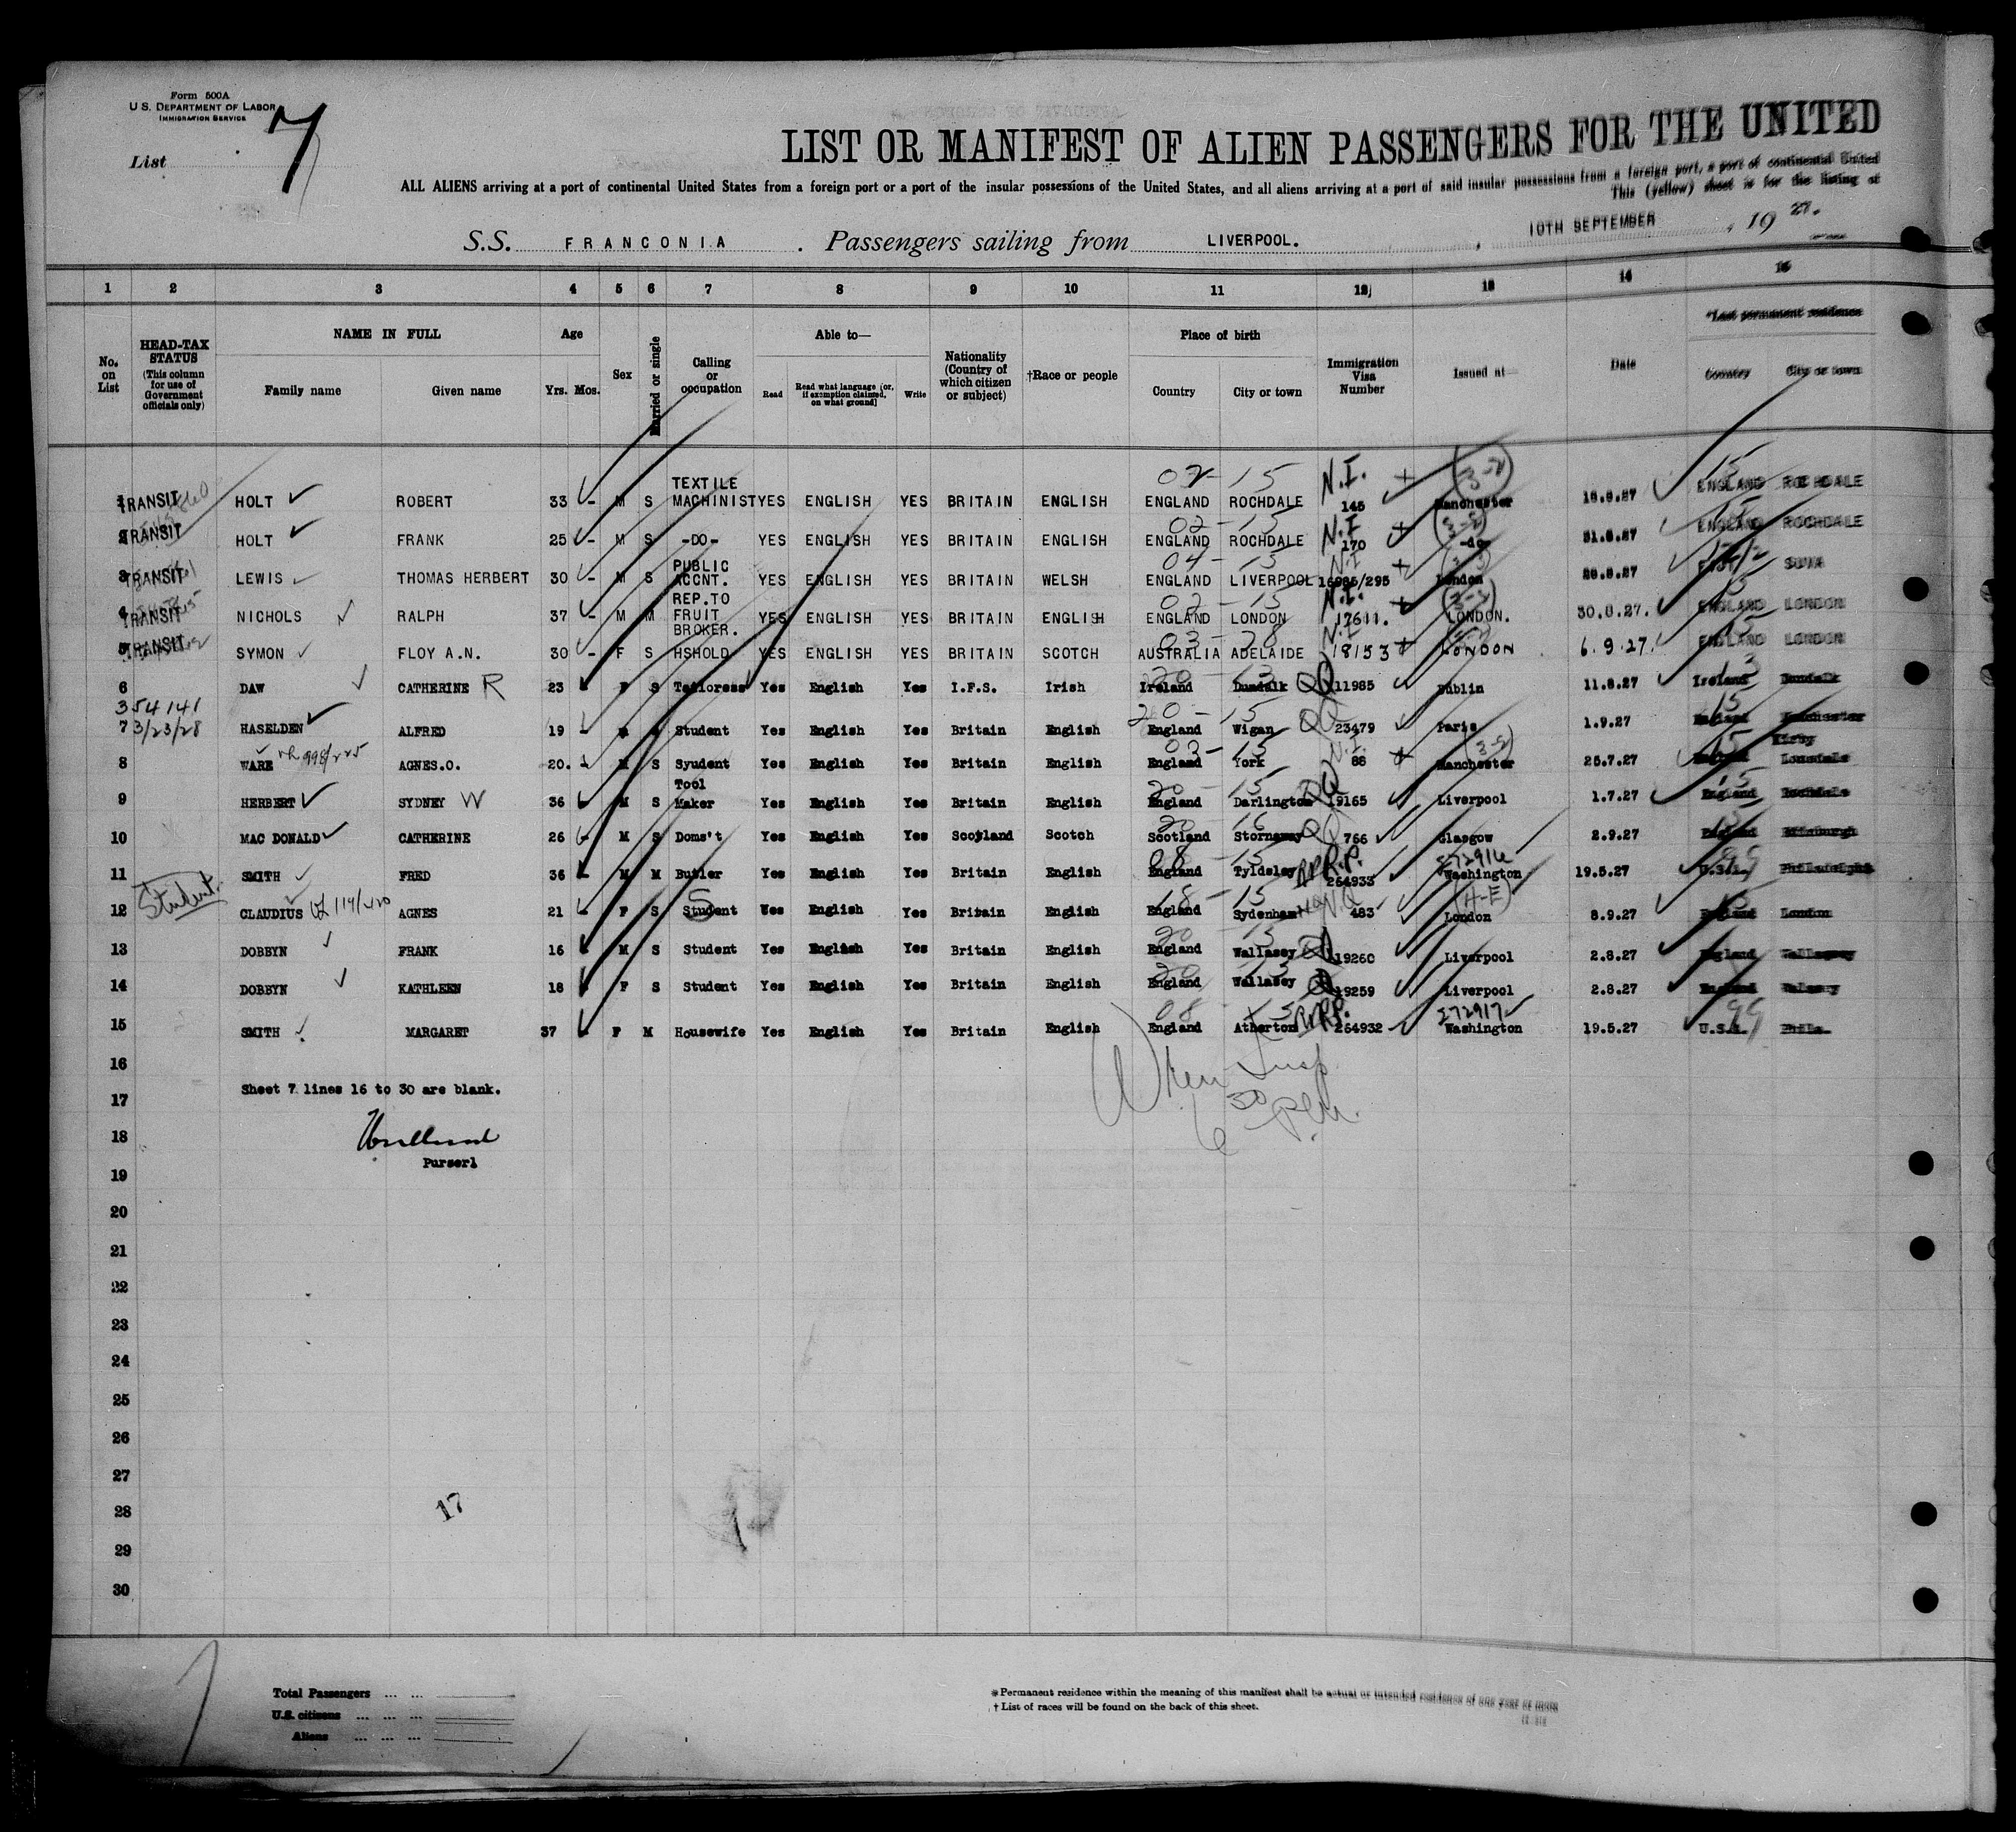 Form 500A
U.S. DEPARTMENT OF LABOR
IMMIGRATION SERVICE
List 7
LIST OR MANIFEST OF ALIEN PASSENGERS FOR THE UNITED
ALL ALIENS arriving at a port of continental United States from a foreign port or a port of the insular possessions of the United States, and all aliens arriving at a port of said insular possessions from a foreign port, a port of continental United
This (yellow) sheet is for the listing of
S.S. FRANCONIA . Passengers sailing from LIVERPOOL. , 10TH SEPTEMBER , 19 27.
1 2 3 4 5 6 7 8 9 10 11 12 13 14 15
No. on List
HEAD-TAX STATUS (This column for use of Government officials only)
NAME IN FULL
Family name Given name
Age
Yrs. Mos.
Sex
Married or single
Calling or occupation
Able to—
Read Read what language [or, if exemption claimed, on what ground] Write
Nationality (Country of which citizen or subject)
†Race or people
Place of birth
Country City or town
Immigration Visa Number
Issued at—
Date
*Last permanent residence
Country City or town
02-15 N.I. + (3-2) 15
1 TRANSIT HOLT ROBERT 33 - M S TEXTILE MACHINIST YES ENGLISH YES BRITAIN ENGLISH ENGLAND ROCHDALE 145 Manchester 18.8.27 ENGLAND ROCHDALE
02-15 N.I + (3-2)
2 TRANSIT HOLT FRANK 25 - M S -DO- YES ENGLISH YES BRITAIN ENGLISH ENGLAND ROCHDALE 170 -do- 31.8.27 ENGLAND ROCHDALE
04-15 N.I +
3 TRANSIT LEWIS THOMAS HERBERT 30 - M S PUBLIC ACCNT. YES ENGLISH YES BRITAIN WELSH ENGLAND LIVERPOOL 16985/295 London SUVA
02-15 N.I. + (3-2) 15
4 TRANSIT NICHOLS RALPH 37 - M M REP.TO FRUIT BROKER. YES ENGLISH YES BRITAIN ENGLISH ENGLAND LONDON 17611. LONDON. 30.8.27. ENGLAND LONDON
03-28 N.I + 15
5 TRANSIT SYMON FLOY A.N. 30 - F S HSHOLD YES ENGLISH YES BRITAIN SCOTCH AUSTRALIA ADELAIDE 18153 LONDON 6.9.27. ENGLAND LONDON
6 DAW CATHERINE R 23 F S Tailoress Yes English Yes I.F.S. Irish Ireland Dundalk Q 11985 Dublin 11.8.27 Ireland Dundalk
354141
20-15 15
7 3/23/28 HASELDEN ALFRED 19 - Student Yes English Yes Britain English England Wigan Q 23479 Paris 1.9.27 England Manchester
03-15 N.I. + (3-2) 15
8 WARE 998/225 AGNES.O. 20. - M S Syudent Yes English Yes Britain English England York 86 Manchester 25.7.27 Kirby Lonsdale
20-15 15
9 HERBERT SYDNEY W 36 M S Tool Maker Yes English Yes Britain English England Darlington Q 19165 Liverpool 1.7.27 England
20-16
10 MAC DONALD CATHERINE 26 - M S Doms't Yes English Yes Scotland Scotch Scotland Stornoway Q 766 Glasgow 2.9.27 Edinburgh
08-15 R.P. 272916 99
11 SMITH FRED 36 - M M Butler Yes English Yes Britain English England Tyldsley 264933 Washington 19.5.27 U.S.A. Philadelphia
Student
18-15 (4-E)
12 CLAUDIUS AGNES 21 - F S Student Yes English Yes Britain English England Sydenham 483 London 8.9.27 London
20-15
13 DOBBYN FRANK 16 M S Student Yes English Yes Britain English England Wallasey Q 19260 Liverpool 2.8.27 England Wallasey
20-15
14 DOBBYN KATHLEEN 18 F S Student Yes English Yes Britain English England Wallasey Q 19259 Liverpool 2.8.27 England Walasey
08-15 R.P. 272917 99
15 SMITH MARGARET 37 F M Housewife Yes English Yes Britain English England Atherton 264932 Washington 19.5.27 U.S.A. Phila.
16
Sheet 7 lines 16 to 30 are blank.
17
18
Purser1
19
20
21
22
23
24
25
26
27
17
28
29
30
Total Passengers ... ...
U.S. citizens ... ... ...
Aliens ... ... ...
*Permanent residence within the meaning of this manifest shall be actual or intended residence of one year or more
†List of races will be found on the back of this sheet.